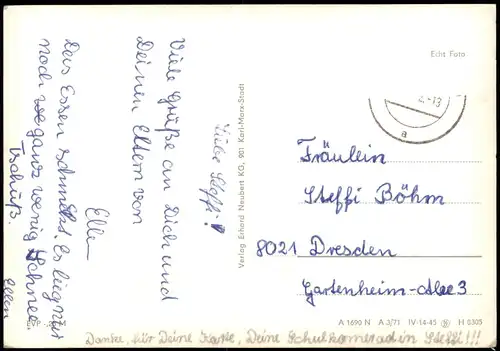 Liebe Steffi!
Viele Grüße an Dich und
Deinen Eltern von
Ellen
Das Essen schmeckt. Es liegt nur
noch ganz wenig Schnee
Tschüß.
Ellen
Verlag Erhard Neubert KG, 901 Karl-Marx-Stadt
Echt Foto
-13
a
Fräulein
Steffi Böhm
8021 Dresden
Gartenheim-Allee 3
A 1690 N A 3/71 IV-14-45 H 0305
Danke, für Deine Karte, Deine Schulkameradin Steffi!!!